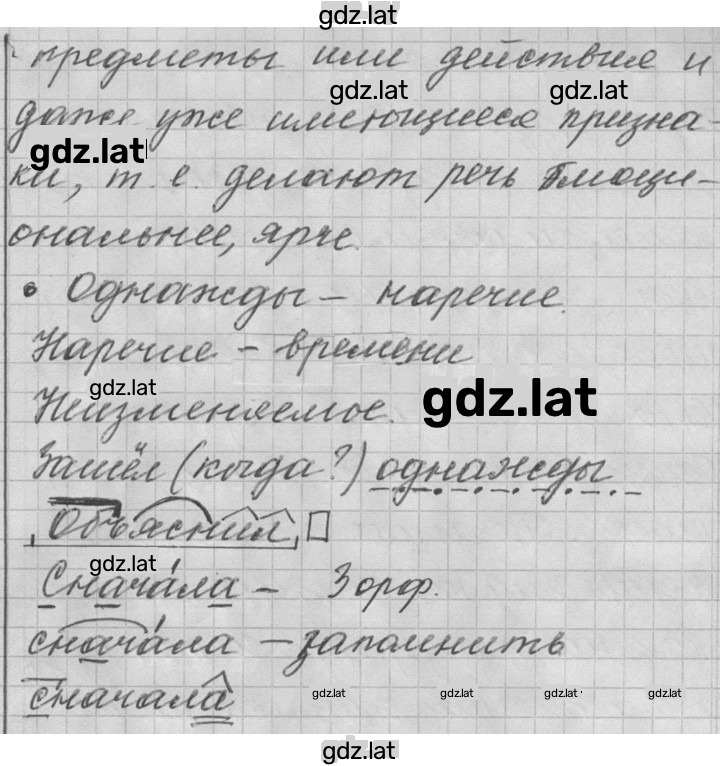 gdz.lat
предметы или действие и
gdz.lat gdz.lat
даже уже имеющиеся призна-
gdz.lat
ки, т. е. делают речь эмоци-
ональнее, ярче.
Однажды – наречие.
Наречие – времени
gdz.lat
Неизменяемое.
gdz.lat
Зашёл (когда?) однажды
Объяснил
gdz.lat
Снача́ла – 3 орф.
снача́ла – запомнить
сначала
gdz.lat gdz.lat gdz.lat gdz.lat
gdz.lat